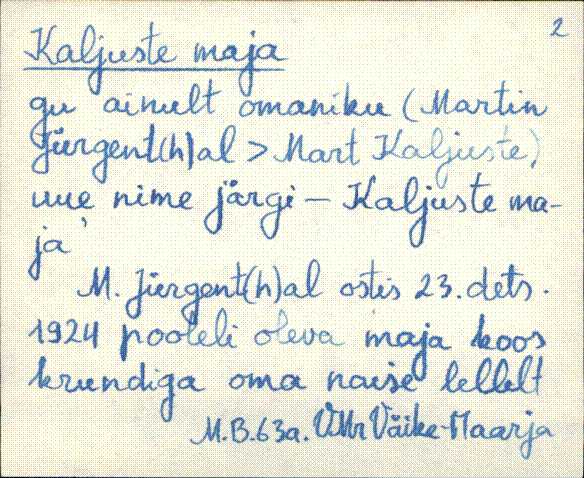 2
Kaljuste maja
gu ainult omaniku (Martin
Jürgent(h)al > Mart Kaljuste)
uue nime järgi – Kaljuste ma-
ja'
M. Jürgent(h)al ostis 23. dets.
1924 pooleli oleva maja koos
krundiga oma naise lellelt
M.B.63a. VMr Väike-Maarja